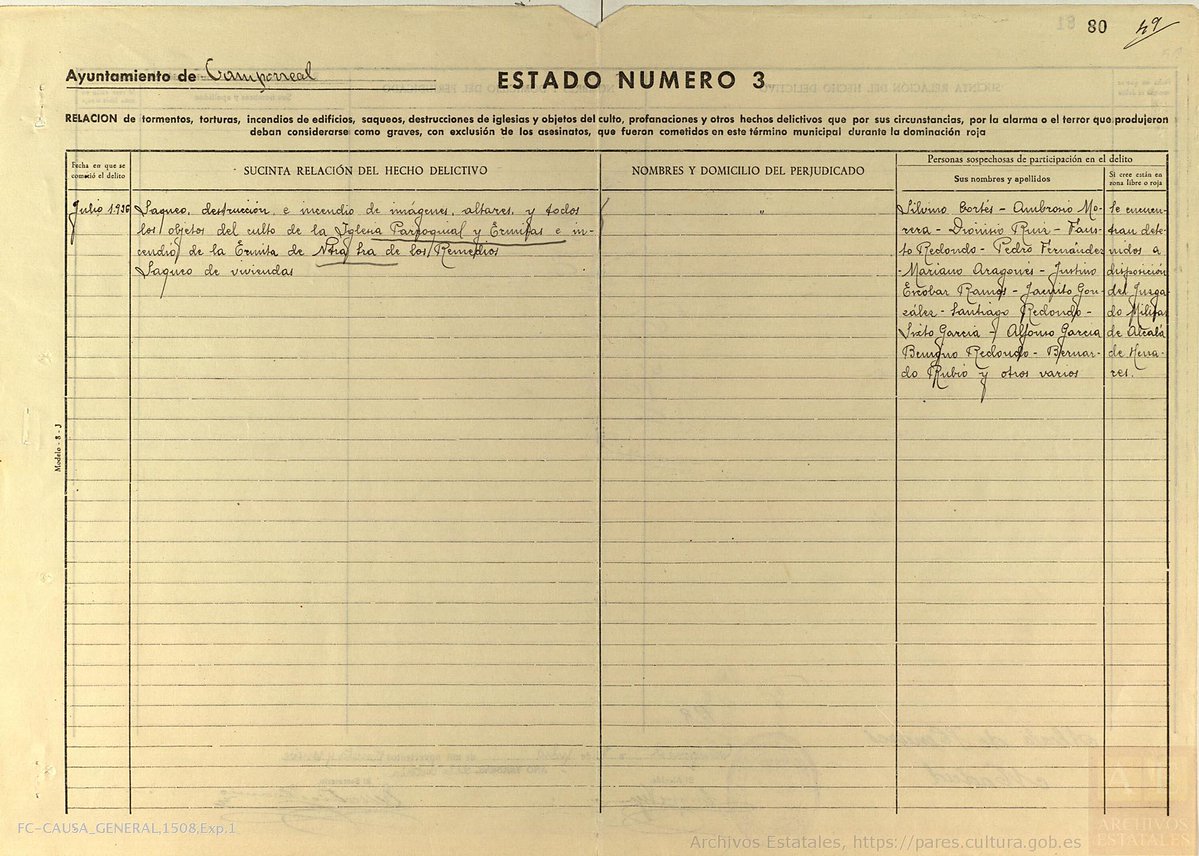 80
49
Ayuntamiento de Camporreal
ESTADO NUMERO 3
RELACION de tormentos, torturas, incendios de edificios, saqueos, destrucciones de iglesias y objetos del culto, profanaciones y otros hechos delictivos que por sus circunstancias, por la alarma o el terror que produjeron
deban considerarse como graves, con exclusión de los asesinatos, que fueran cometidos en este término municipal durante la dominación roja
Fecha en que se
cometió el delito
SUCINTA RELACIÓN DEL HECHO DELICTIVO
NOMBRES Y DOMICILIO DEL PERJUDICADO
Personas sospechosas de participación en el delito
Sus nombres y apellidos
Si cree están en
zona libre o roja
Julio 1.936
Saqueo, destrucción e incendio de imágenes, altares, y todos
los objetos del culto de la Iglesia Parroquial y Ermitas e in-
cendio de la Ermita de Ntra Sra de los Remedios
Saqueo de viviendas
"
Silvino Cortés - Ambrosio Mo-
rera - Dionisio Ruiz - Faus-
to Redondo - Pedro Fernández
- Mariano Aragonés - Justino
Escobar Ramos - Jacinto Gon-
zález - Santiago Redondo -
Sixto García - Alfonso García
Benigno Redondo - Bernar-
do Rubio y otros varios
Se encuen-
tran dete-
nidos a
disposición
del Juzga-
do Militar
de Alcalá
de Hena-
res.
Modelo - 3 - J
FC-CAUSA_GENERAL,1508,Exp.1
Archivos Estatales, https://pares.cultura.gob.es
ARCHIVOS
ESTATALES